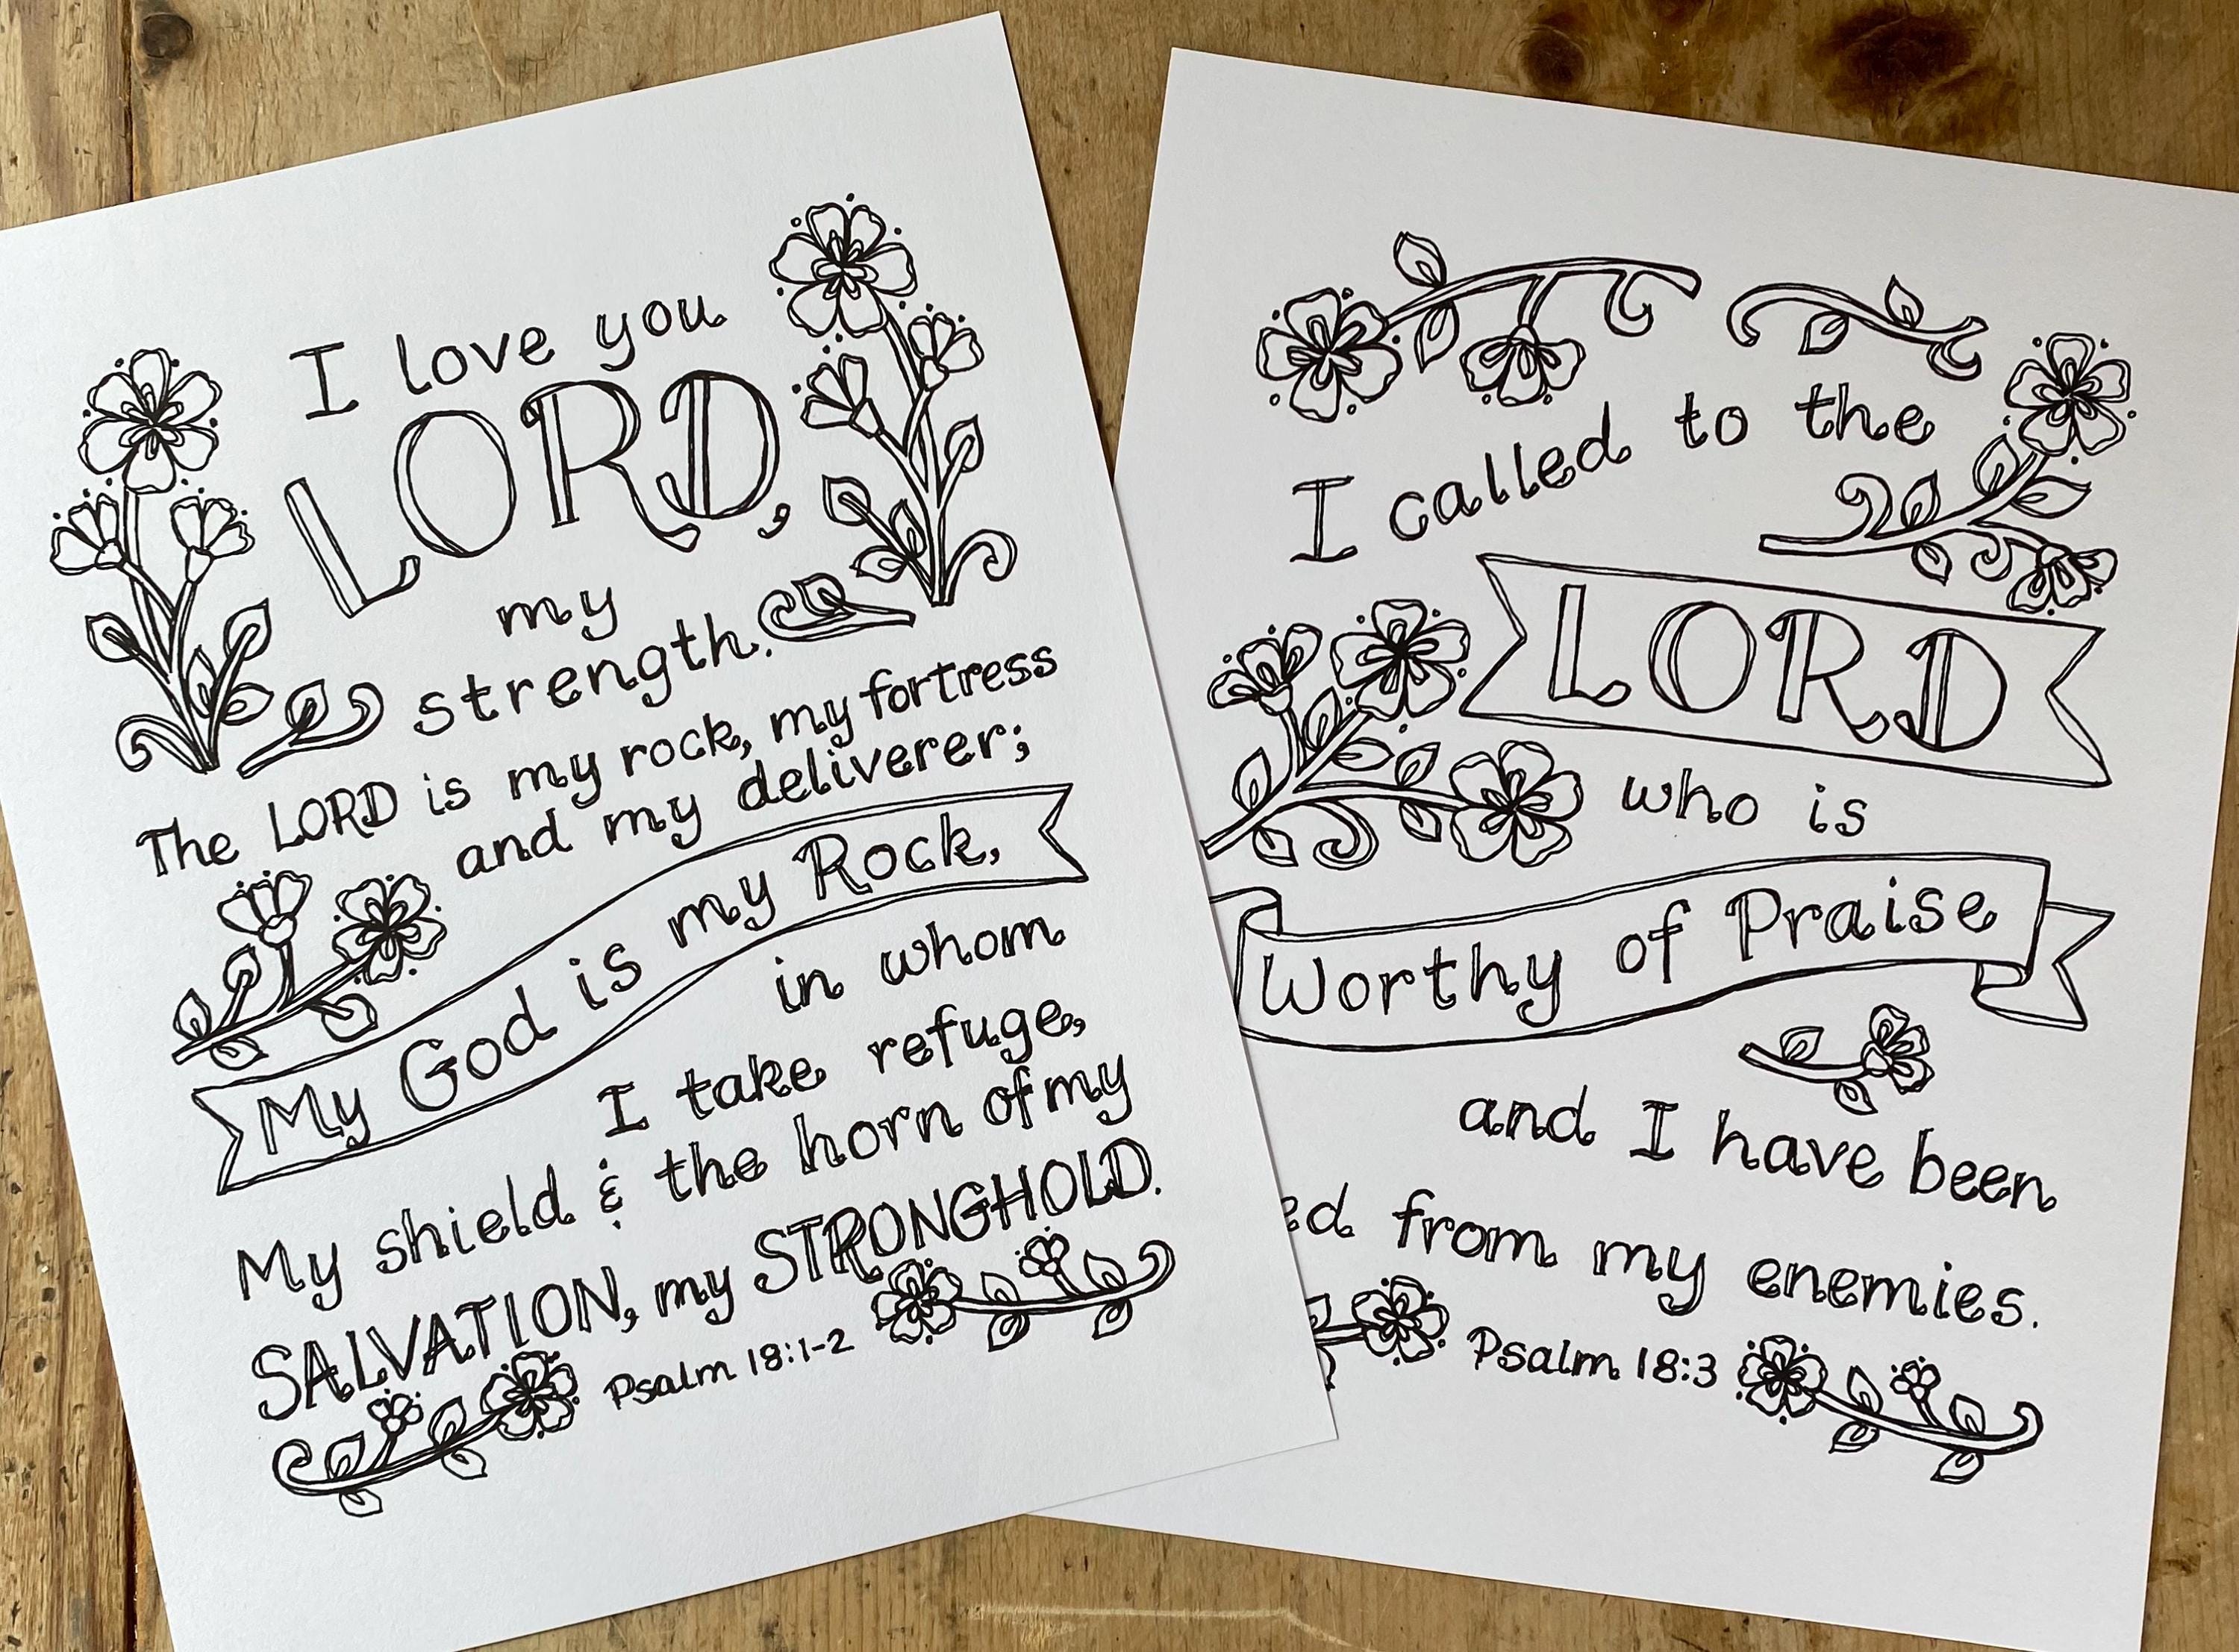 I love you
LORD,
my
strength.
The LORD is my rock, my fortress
and my deliverer;
My God is my Rock,
in whom
I take refuge,
My shield & the horn of my
SALVATION, my STRONGHOLD.
Psalm 18:1-2
I called to the
LORD
who is
Worthy of Praise
and I have been
from my enemies.
Psalm 18:3